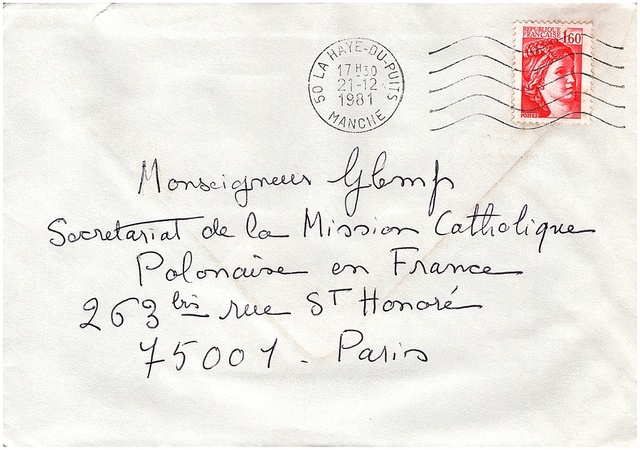 REPUBLIQUE
FRANCAISE 1,60
50 LA HAYE-DU-PUITS
17H30
21-12
1981
MANCHE
Monseigneur Glemp
Secretariat de la Mission Catholique
Polonaise en France
263 bis rue ST Honoré
75001 - Paris